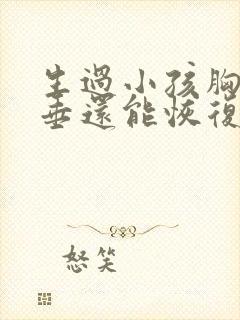 生過小孩胸
垂還能恢復
怒笑